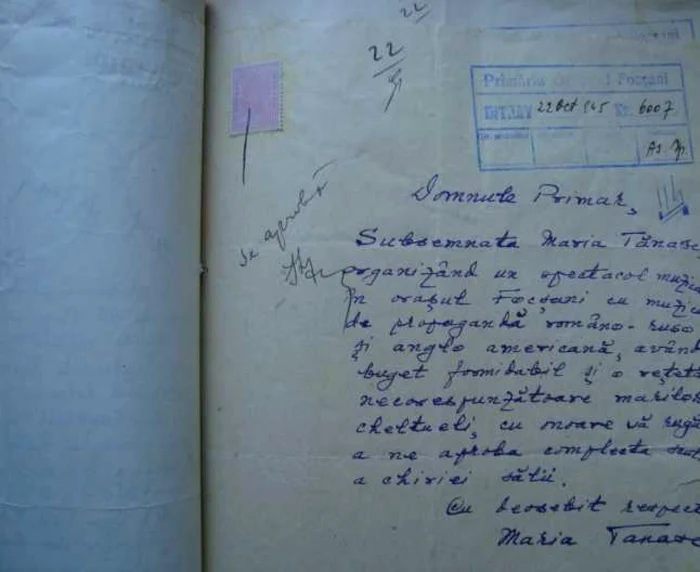 22
22
Primăria Focșani
INTRAT 22 Oct 945 Nr. 6007
se aprobă
Domnule Primar,
Subsemnata Maria Tănase
organizând un spectacol muzica
în orașul Focșani cu muzic
de propagandă româno-ruso
și anglo americană, având
buget formidabil și o rețet
necorespunzătoare marilor
cheltueli, cu onoare vă rugă
a ne aproba complecta scut
a chiriei sălii.
Cu deosebit respect
Maria Tanase